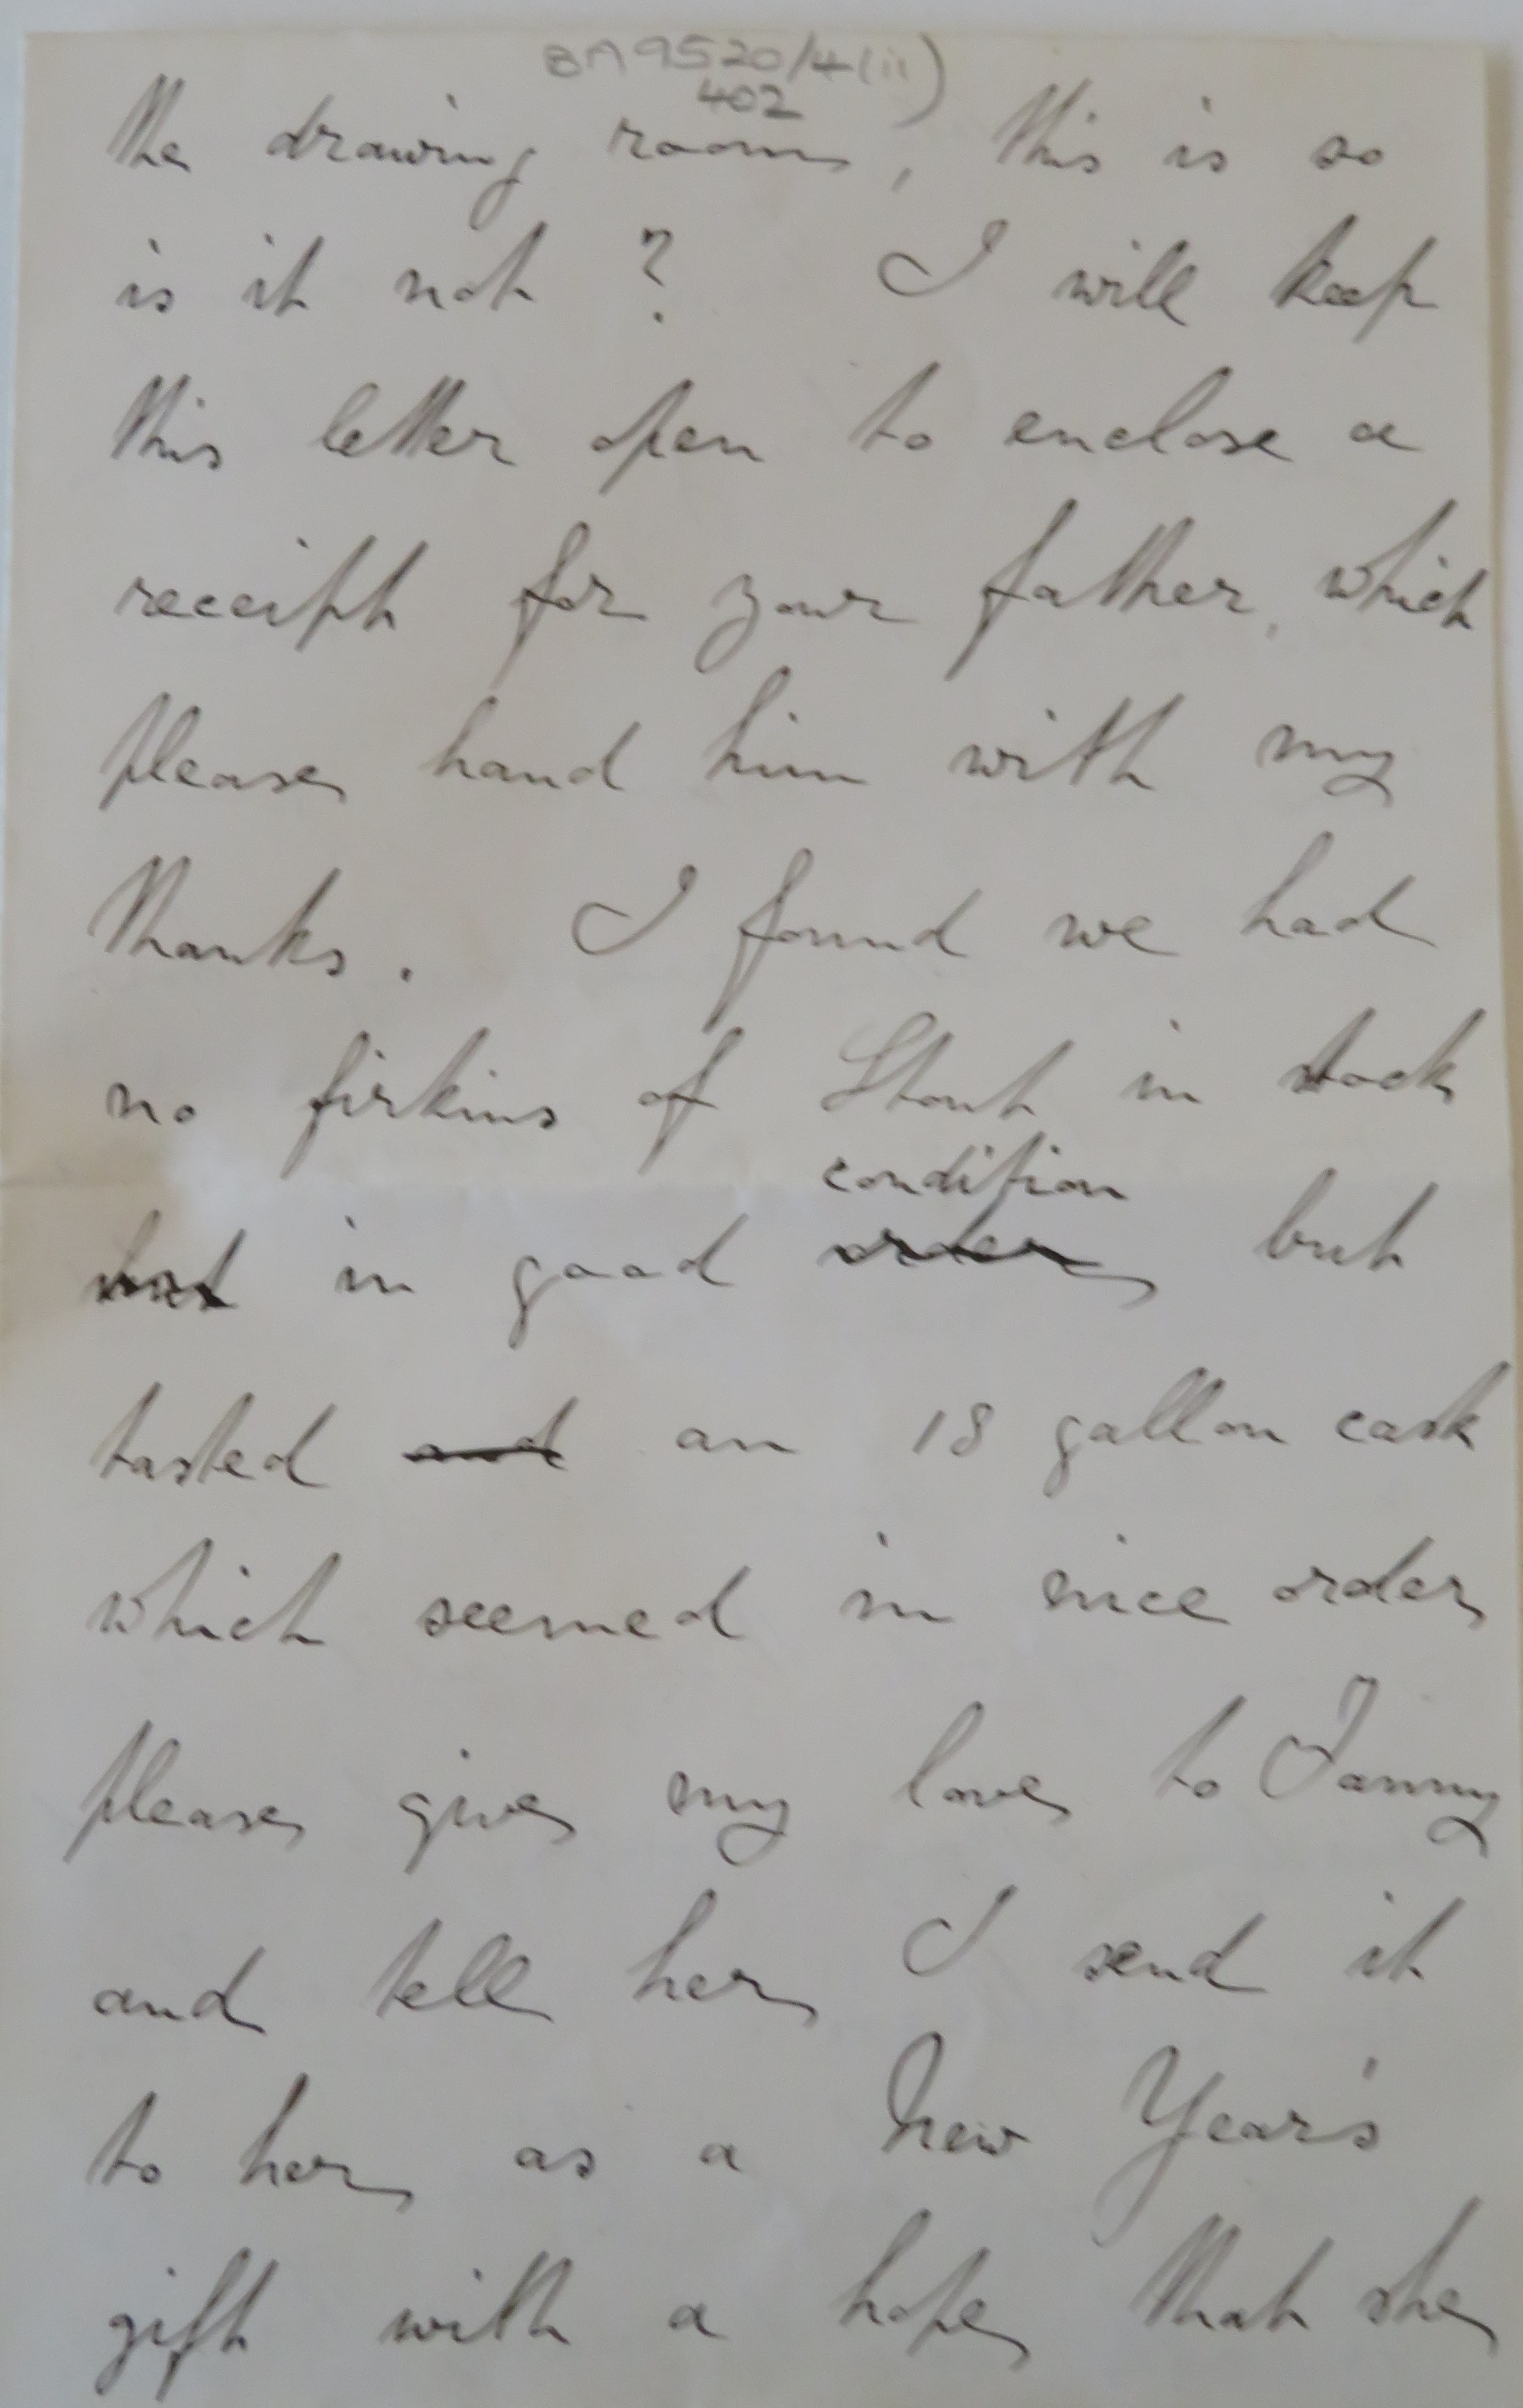 BA9520/4(ii)
402
the drawing room, this is so
is it not? I will keep
this letter open to enclose a
receipt for your father, which
please hand him with my
thanks. I found we had
no firkins of Stout in stock
condition
in good order but
tasted and an 18 gallon cask
which seemed in nice order
please give my love to Fanny
and tell her I send it
to her as a New Year's
gift with a hope that she